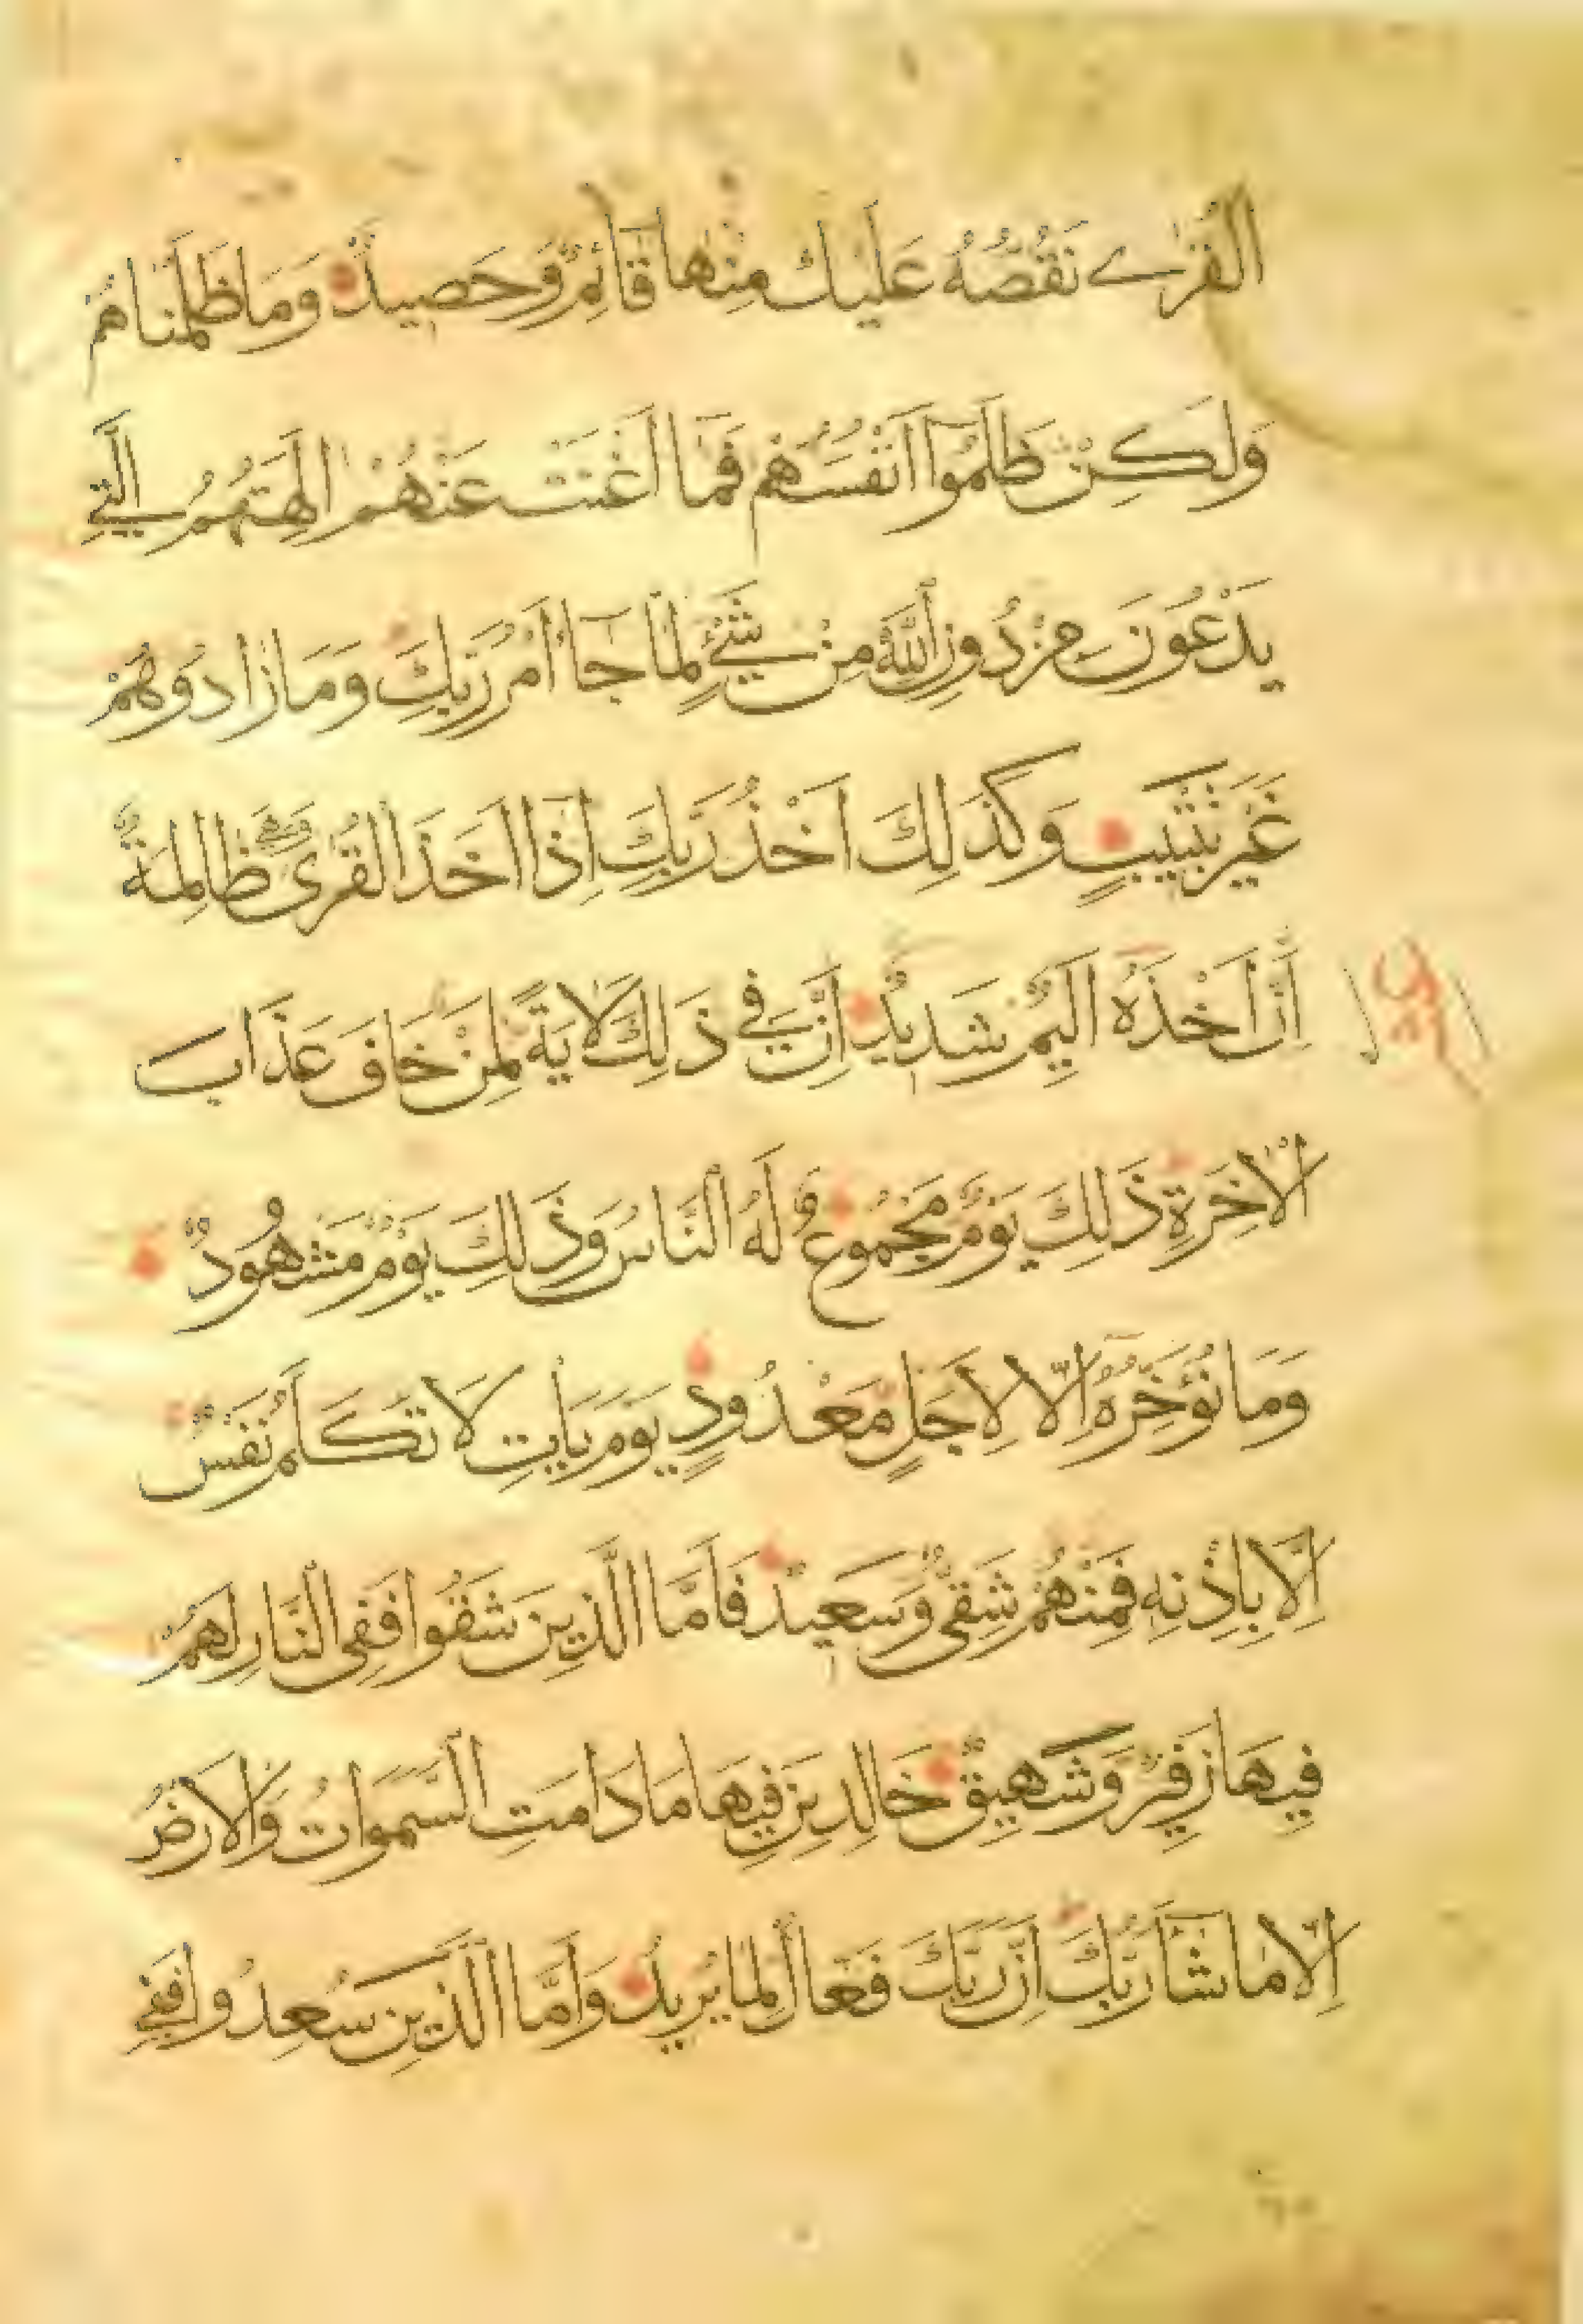 القُرٰے نَقُصُّهُ عَلَيْكَ مِنْهَا قَآئِمٌ وَّحَصِيدٌ وَمَا ظَلَمْنَاهُمْ
وَلَكِنْ ظَلَمُوٓا اَنْفُسَهُمْ فَمَآ اَغْنَتْ عَنْهُمْ اٰلِهَتُهُمُ الَّتِي
يَدْعُونَ مِنْ دُونِ اللّٰهِ مِنْ شَيْءٍ لَمَّا جَآءَ اَمْرُ رَبِّكَ وَمَا زَادُوهُمْ
غَيْرَ تَتْبِيبٍ وَكَذَلِكَ اَخْذُ رَبِّكَ اِذَآ اَخَذَ الْقُرَى وَهِيَ ظَالِمَةٌ
اِنَّ اَخْذَهُ اَلِيمٌ شَدِيدٌ اِنَّ فِي ذَلِكَ لَاٰيَةً لِمَنْ خَافَ عَذَابَ
الْاٰخِرَةِ ذَلِكَ يَوْمٌ مَجْمُوعٌ لَهُ النَّاسُ وَذَلِكَ يَوْمٌ مَشْهُودٌ
وَمَا نُؤَخِّرُهُ اِلَّا لِاَجَلٍ مَعْدُودٍ يَوْمَ يَأْتِ لَا تَكَلَّمُ نَفْسٌ
اِلَّا بِاِذْنِهِ فَمِنْهُمْ شَقِيٌّ وَسَعِيدٌ فَاَمَّا الَّذِينَ شَقُوا فَفِي النَّارِ لَهُمْ
فِيهَا زَفِيرٌ وَشَهِيقٌ خَالِدِينَ فِيهَا مَا دَامَتِ السَّمٰوَاتُ وَالْاَرْضُ
اِلَّا مَا شَآءَ رَبُّكَ اِنَّ رَبَّكَ فَعَّالٌ لِمَا يُرِيدُ وَاَمَّا الَّذِينَ سُعِدُوا فَفِي